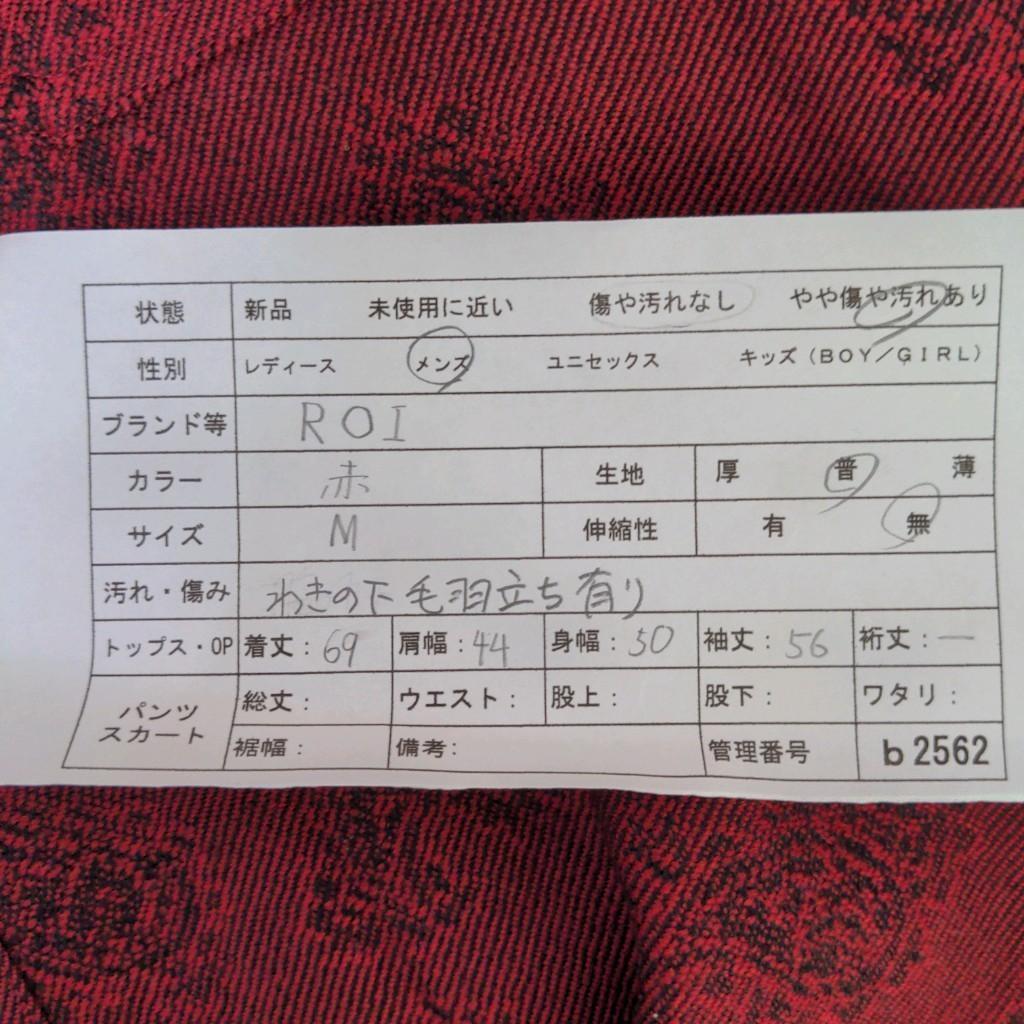 状態 新品 未使用に近い 傷や汚れなし やや傷や汚れあり
性別 レディース メンズ ユニセックス キッズ(BOY/GIRL)
ブランド等 ROI
カラー 赤 生地 厚 普 薄
サイズ M 伸縮性 有 無
汚れ・傷み わきの下毛羽立ち有り
トップス・OP 着丈:69 肩幅:44 身幅:50 袖丈:56 裄丈:―
パンツ スカート 総丈: ウエスト: 股上: 股下: ワタリ:
裾幅: 備考: 管理番号 b2562